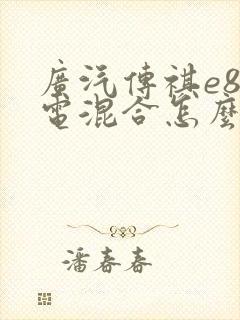 廣汽傳祺e8
電混合怎麼
潘春春